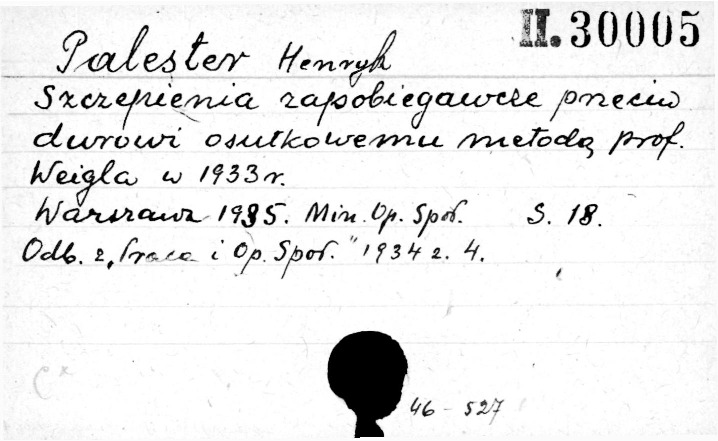 II.30005
Palester Henryk
Szczepienia zapobiegawcze przeciw
durowi osutkowemu metodą prof.
Weigla w 1933 r.
Warszawa 1935. Min. Op. Społ. S. 18.
Odb. z „Praca i Op. Społ.” 1934 z. 4.
46 - 527